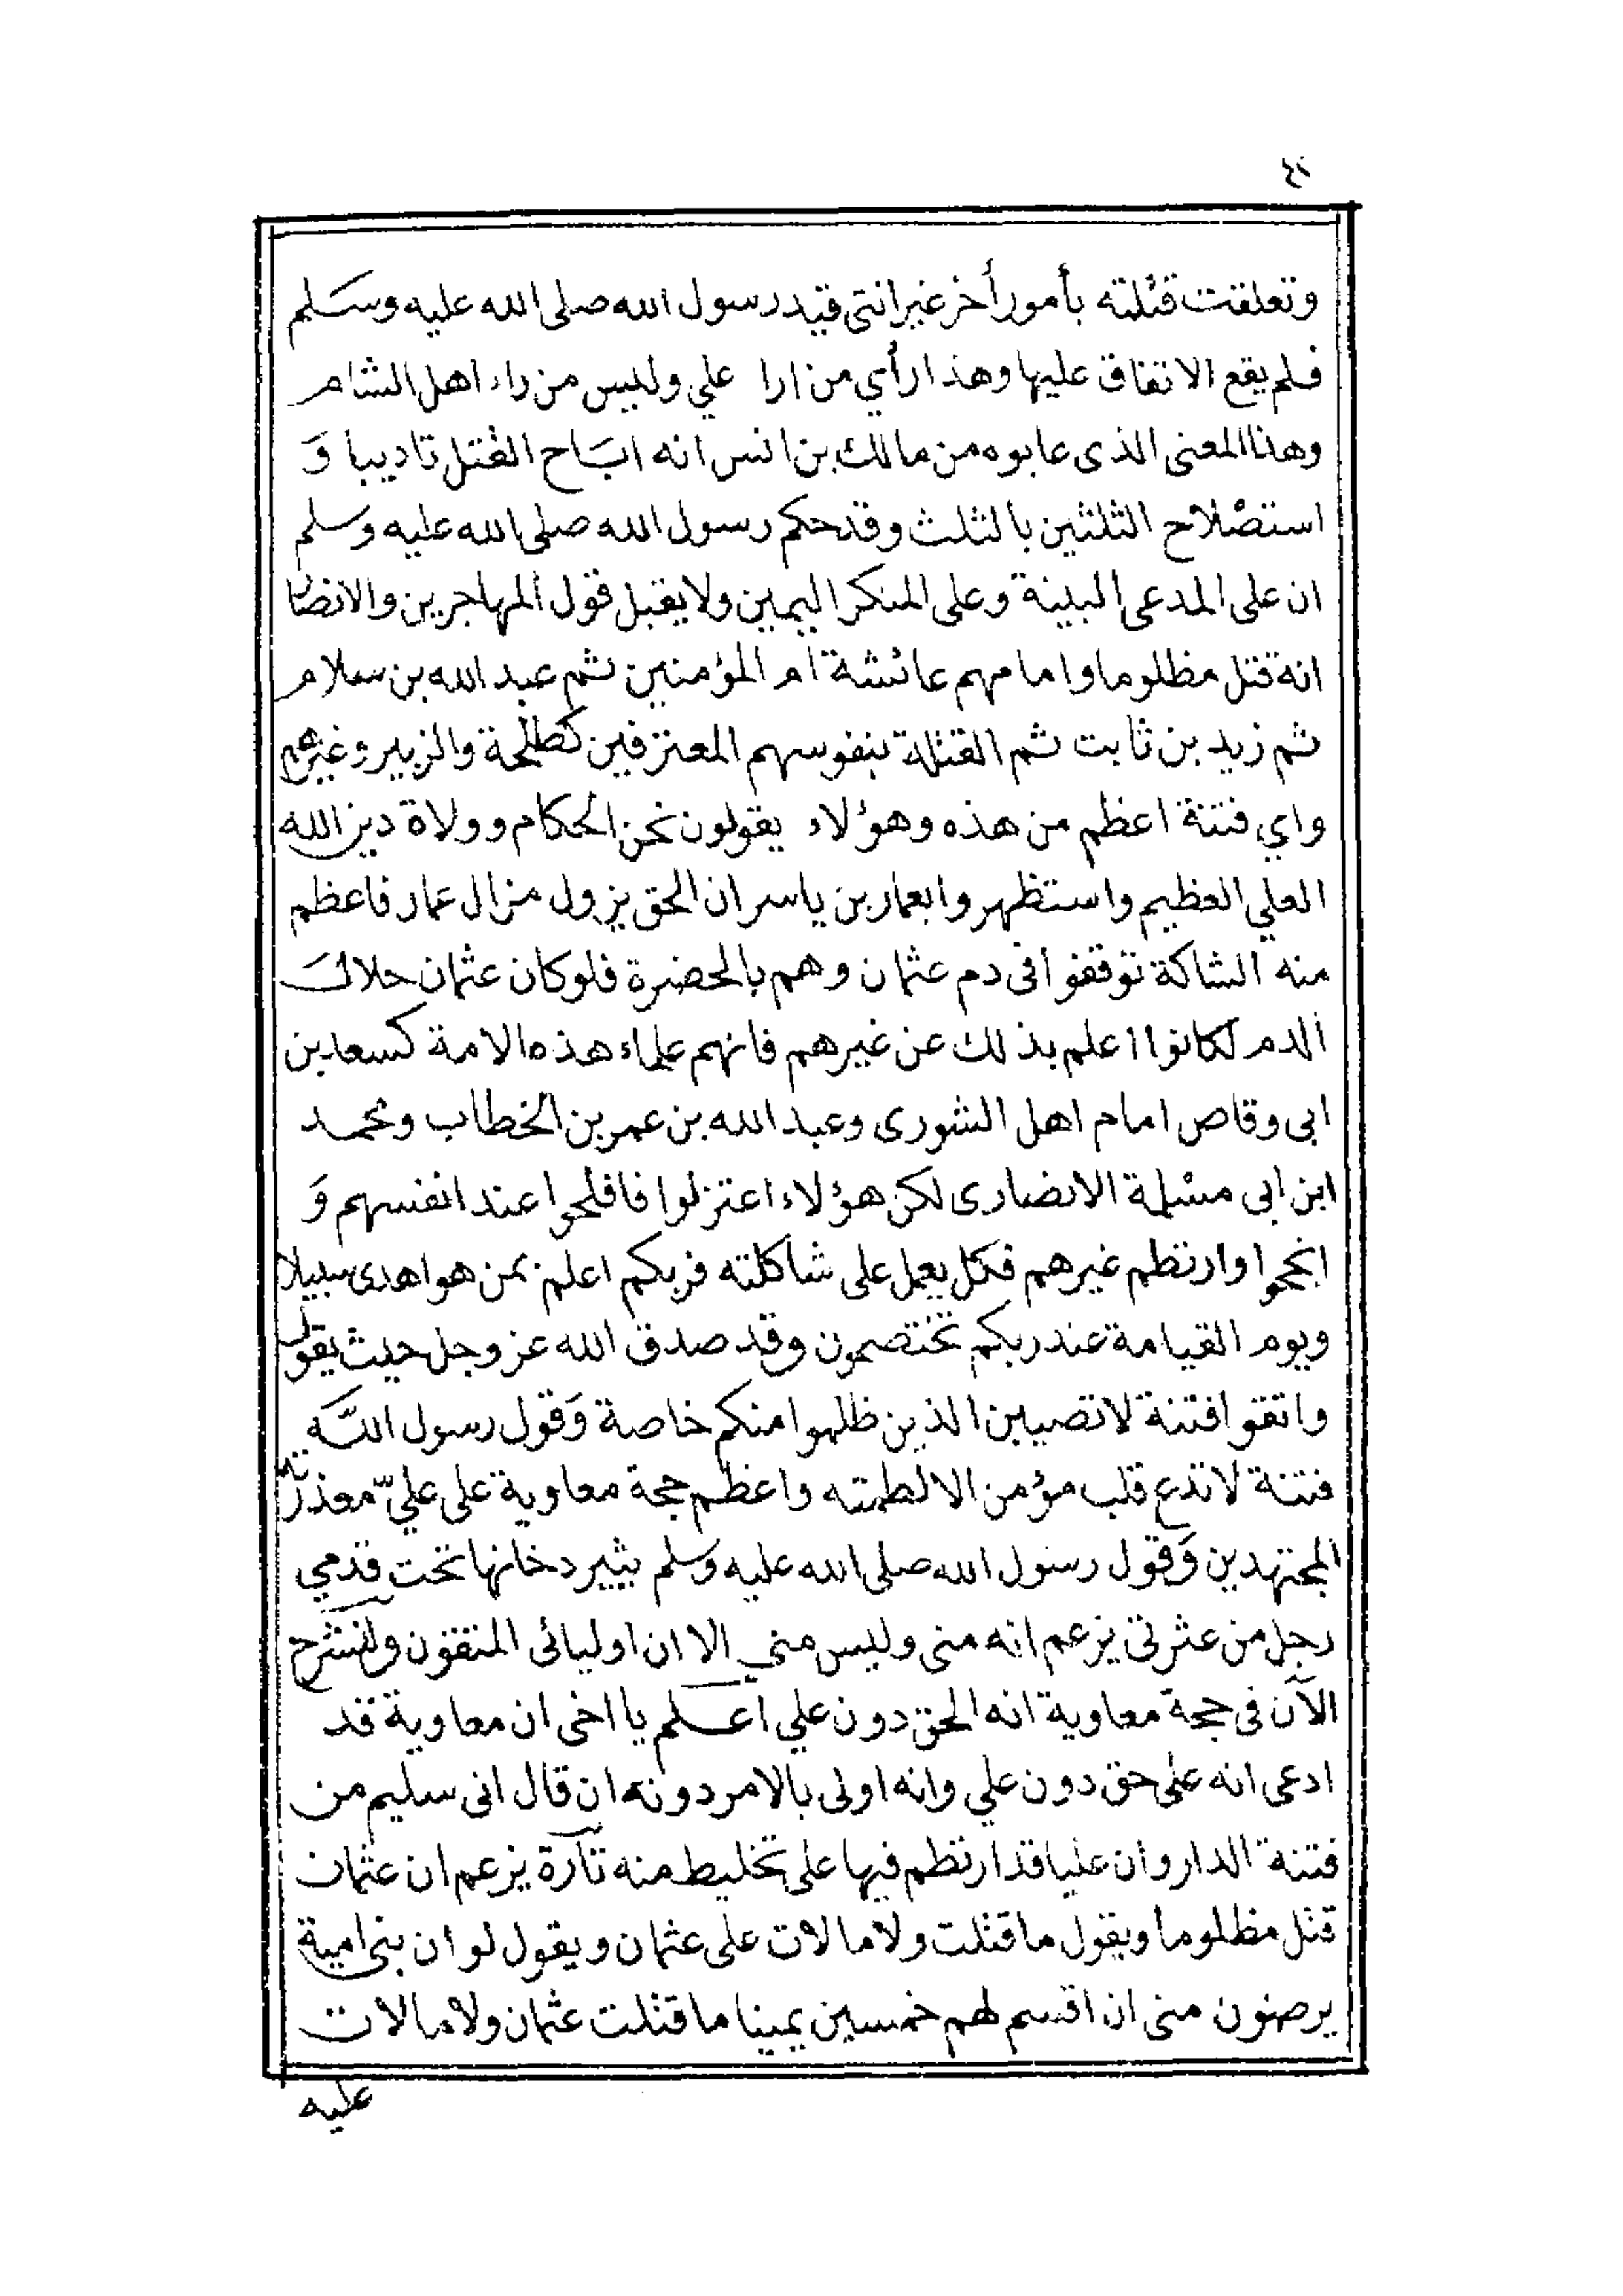 وتعلقت قتلته بأمور أخر غير انتي قيد رسول الله صلى الله عليه وسلم
فلم يقع الاتفاق عليها وهذا رأي من ارا علي وليس من راء اهل الشام
وهذا المعنى الذى عابوه من مالك بن انس انه اباح القتل تاديبا و
استصلاح الثلثين بالثلث وقد حكم رسول الله صلى الله عليه وسلم
ان على المدعى البينة وعلى المنكر اليمين ولا يقبل قول المهاجرين والانصار
انه قتل مظلوما وامامهم عائشة ام المؤمنين ثم عبد الله بن سلام
ثم زيد بن ثابت ثم القتلة بنفوسهم المعترفين كطلحة والزبير وغيرهم
واي فتنة اعظم من هذه وهؤلاء يقولون نحن الحكام وولاة دين الله
العلي العظيم واستظهروا بعمار بن ياسر ان الحق يزول مزال عمار فاعظم
منه الشاكة توقفوا فى دم عثمان وهم بالحضرة فلو كان عثمان حلال
الدم لكانوا اعلم بذلك عن غيرهم فانهم علماء هذه الامة كسعد بن
ابى وقاص امام اهل الشورى وعبد الله بن عمر بن الخطاب ومحمد
ابن ابى مسلمة الانصارى لكن هؤلاء اعتزلوا فافلحوا عند انفسهم و
انجحوا وارتطم غيرهم فكل يعمل على شاكلته فربكم اعلم بمن هو اهدى سبيلا
ويوم القيامة عند ربكم تختصمون وقد صدق الله عز وجل حيث يقول
واتقوا فتنة لا تصيبن الذين ظلموا منكم خاصة وقول رسول الله
فتنة لا تدع قلب مؤمن الا لطمته واعظم حجة معاوية على عليّ معذرته
المجتهدين وقول رسول الله صلى الله عليه وسلم يثير دخانها تحت قدمي
رجل من عثرتى يزعم انه منى وليس مني الا ان اوليائى المتقون ولنشرح
الآن فى حجة معاوية انه الحق دون علي اعلم يا اخى ان معاوية قد
ادعى انه على حق دون علي وانه اولى بالامر دونه ان قال انى سليم من
فتنة الدار وان عليا قد ارتطم فيها على تخليط منه تارة يزعم ان عثمان
قتل مظلوما ويقول ما قتلت ولا مالات على عثمان ويقول لو ان بنى امية
يرضون منى ان اقسم لهم خمسين يمينا ما قتلت عثمان ولا مالات
عليه